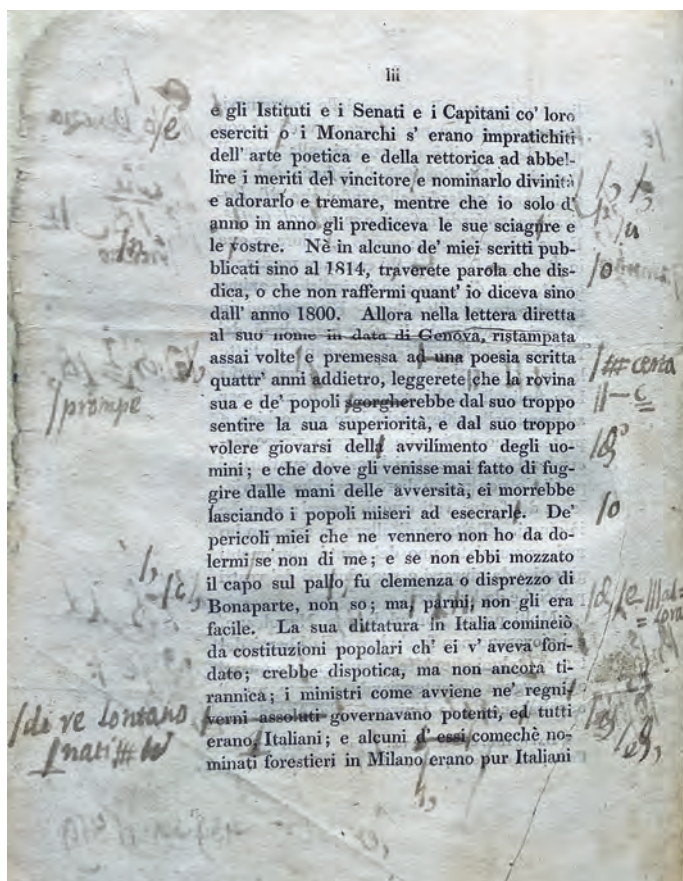 lii
e gli Istituti e i Senati e i Capitani co' loro
eserciti o i Monarchi s' erano impratichiti
dell' arte poetica e della rettorica ad abbel-
lire i meriti del vincitore e nominarlo divinità
e adorarlo e tremare, mentre che io solo d'
anno in anno gli prediceva le sue sciagure e
le vostre. Nè in alcuno de' miei scritti pub-
blicati sino al 1814, traverete parola che dis-
dica, o che non raffermi quant' io diceva sino
dall' anno 1800. Allora nella lettera diretta
al suo nome in data di Genova, ristampata
assai volte e premessa ad una poesia scritta
quattr' anni addietro, leggerete che la rovina
sua e de' popoli sgorgherebbe dal suo troppo
sentire la sua superiorità, e dal suo troppo
volere giovarsi della avvilimento degli uo-
mini; e che dove gli venisse mai fatto di fug-
gire dalle mani delle avversità, ei morrebbe
lasciando i popoli miseri ad esecrarle. De'
pericoli miei che ne vennero non ho da do-
lermi se non di me; e se non ebbi mozzato
il capo sul pallo fu clemenza o disprezzo di
Bonaparte, non so; ma, parmi, non gli era
facile. La sua dittatura in Italia comineiò
da costituzioni popolari ch' ei v' aveva fon-
dato; crebbe dispotica, ma non ancora ti-
rannica; i ministri come avviene ne' regni
verni assoluti governavano potenti, ed tutti
erano, Italiani; e alcuni d' essi comechè no-
minati forestieri in Milano erano pur Italiani
/e
/n
/u
/o
certa
/prompe
/o
/di re lontano